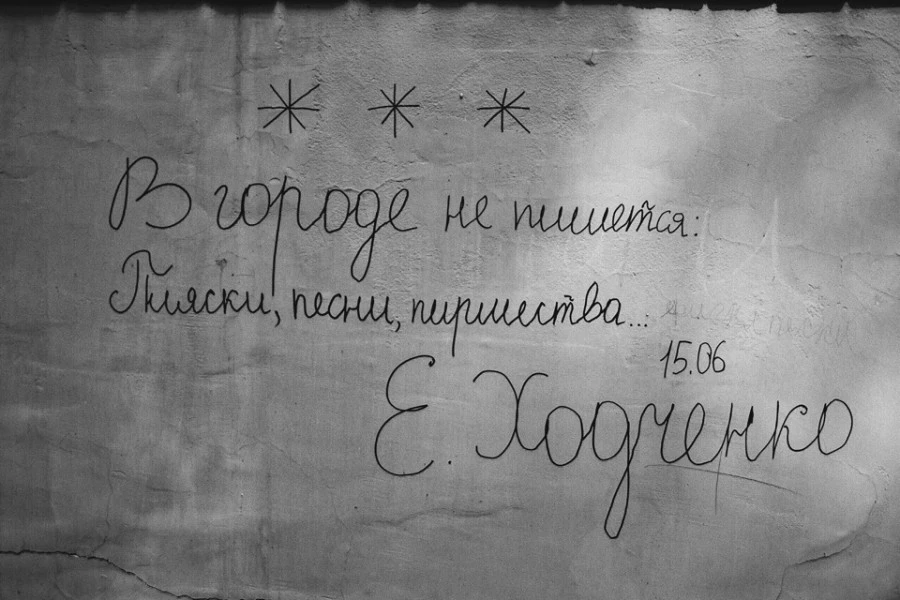 * * *
В городе не пишется:
Пляски, песни, пиршества...
15.06
Е. Ходченко